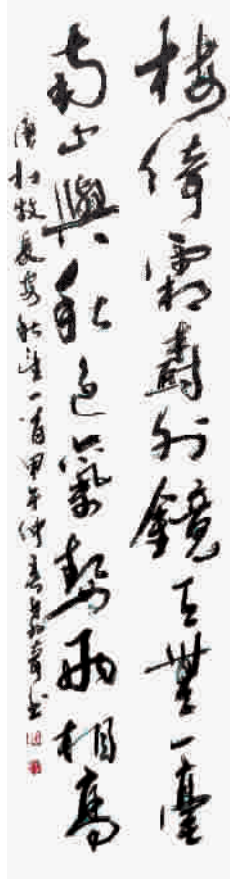 楼倚霜树外镜天无一毫
南山與秋色氣勢两相高
唐杜牧長安秋望一首甲午仲春
书